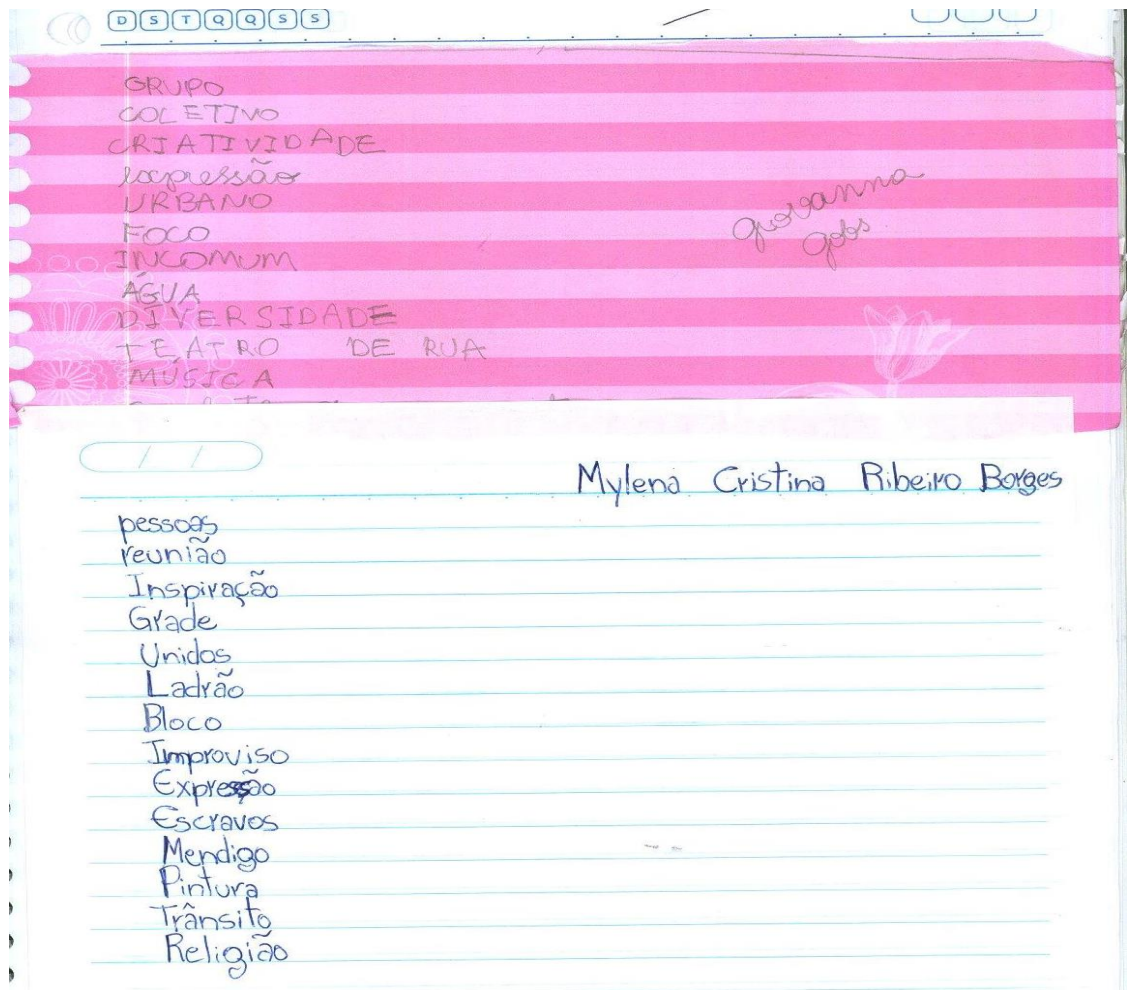 D S T Q Q S S
GRUPO
COLETIVO
CRIATIVIDADE
expressão
URBANO
FOCO
INCOMUM
ÁGUA
DIVERSIDADE
TEATRO DE RUA
MÚSICA
giovanna
gobs
/ /
Mylena Cristina Ribeiro Borges
pessoas
reunião
Inspiração
Grade
Unidos
Ladrão
Bloco
Improviso
Expressão
Escravos
Mendigo
Pintura
Trânsito
Religião